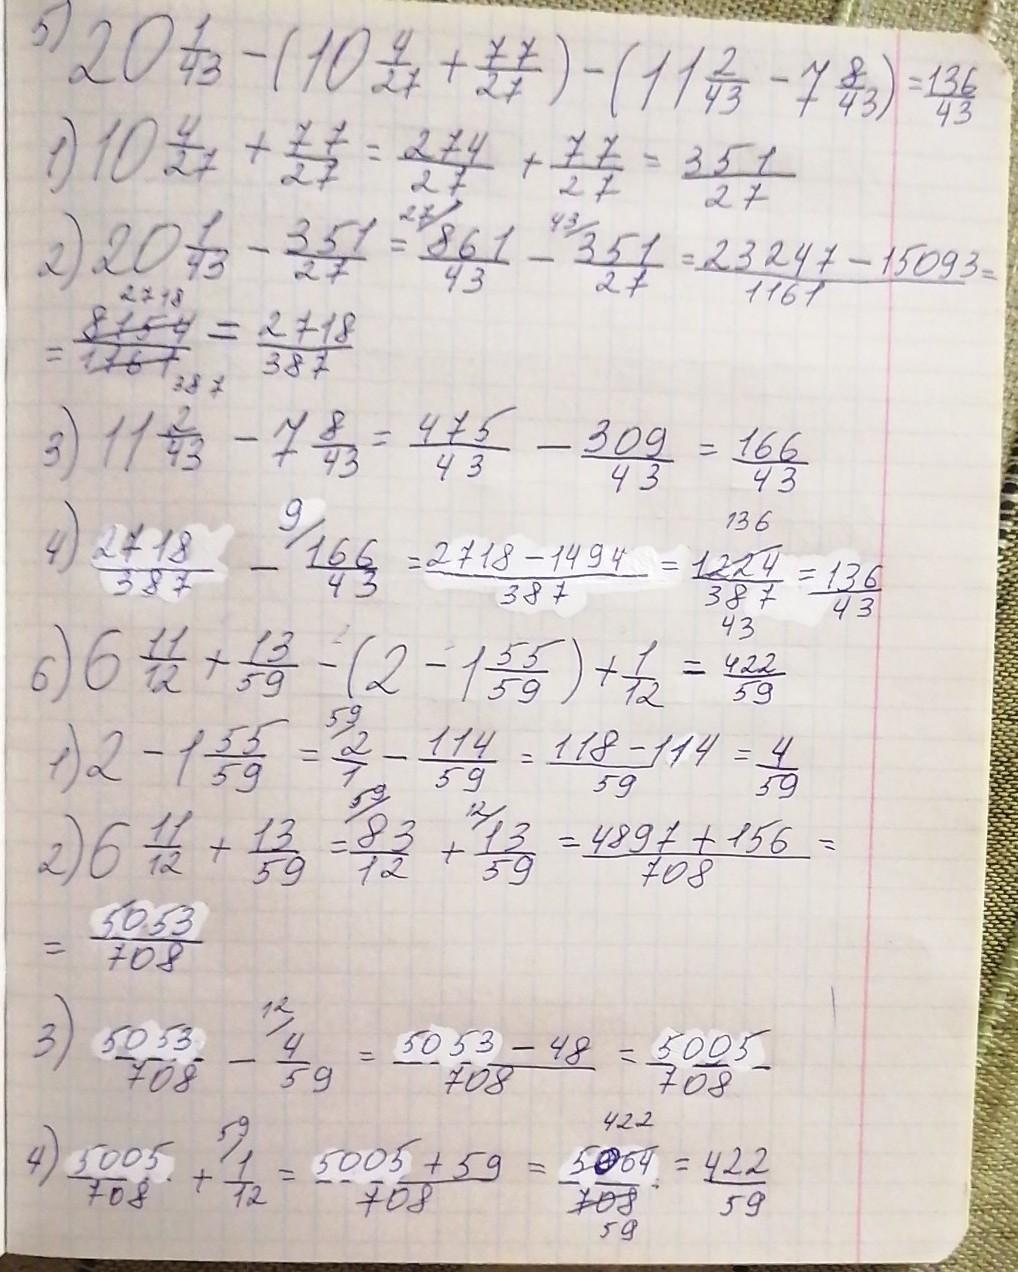 5) 20 1/43 - (10 4/27 + 77/27) - (11 2/43 - 7 8/43) = 136/43
1) 10 4/27 + 77/27 = 274/27 + 77/27 = 351/27
2) 20 1/43 - 351/27 = 27/ 861/43 - 43/ 351/27 = 23247 - 15093/1161 =
= 8154/1161 2718 387 = 2718/387
3) 11 2/43 - 7 8/43 = 475/43 - 309/43 = 166/43
4) 2718/387 - 9/ 166/43 = 2718 - 1494/387 = 1224/387 136 43 = 136/43
6) 6 11/12 + 13/59 - (2 - 1 55/59) + 1/12 = 422/59
1) 2 - 1 55/59 = 59/ 2/1 - 114/59 = 118 - 114/59 = 4/59
2) 6 11/12 + 13/59 = 59/ 83/12 + 12/ 13/59 = 4897 + 156/708 =
= 5053/708
3) 5053/708 - 12/ 4/59 = 5053 - 48/708 = 5005/708
4) 5005/708 + 59/ 1/12 = 5005 + 59/708 = 5064/708 422 59 = 422/59